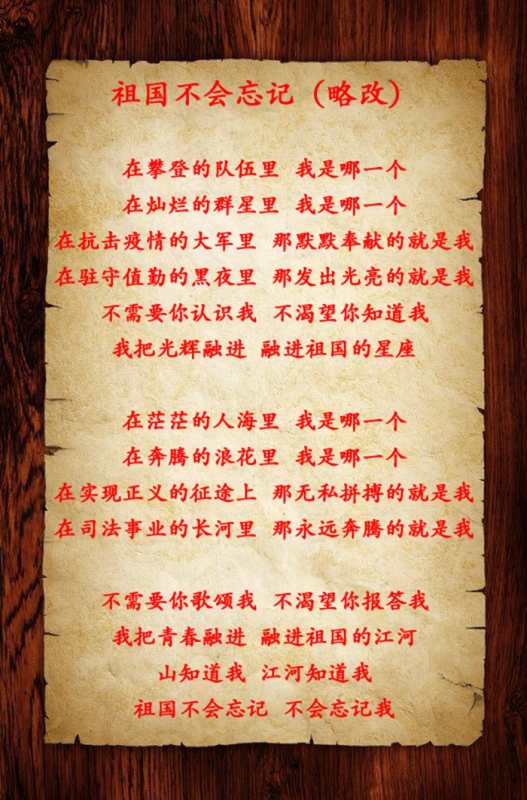 祖国不会忘记（略改）
在攀登的队伍里 我是哪一个
在灿烂的群星里 我是哪一个
在抗击疫情的大军里 那默默奉献的就是我
在驻守值勤的黑夜里 那发出光亮的就是我
不需要你认识我 不渴望你知道我
我把光辉融进 融进祖国的星座
在茫茫的人海里 我是哪一个
在奔腾的浪花里 我是哪一个
在实现正义的征途上 那无私拼搏的就是我
在司法事业的长河里 那永远奔腾的就是我
不需要你歌颂我 不渴望你报答我
我把青春融进 融进祖国的江河
山知道我 江河知道我
祖国不会忘记 不会忘记我